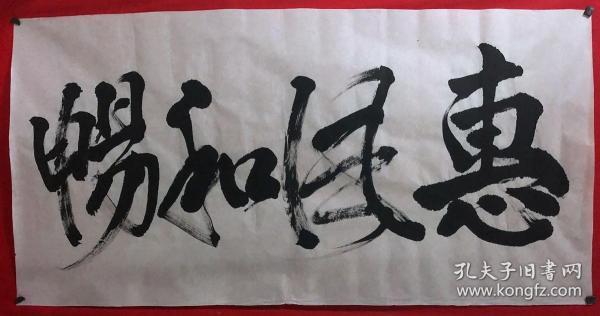 惠风和畅
孔夫子旧书网
www.kongfz.com